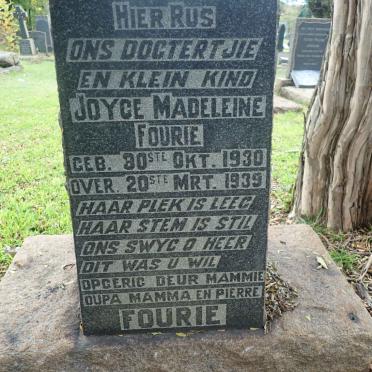 HIER RUS
ONS DOGTERTJIE
EN KLEIN KIND
JOYCE MADELEINE
FOURIE
GEB. 30STE OKT. 1930
OVER. 20STE MRT. 1939
HAAR PLEK IS LEEG
HAAR STEM IS STIL
ONS SWYG O HEER
DIT WAS U WIL
OPGERIG DEUR MAMMIE
OUPA MAMMA EN PIERRE
FOURIE